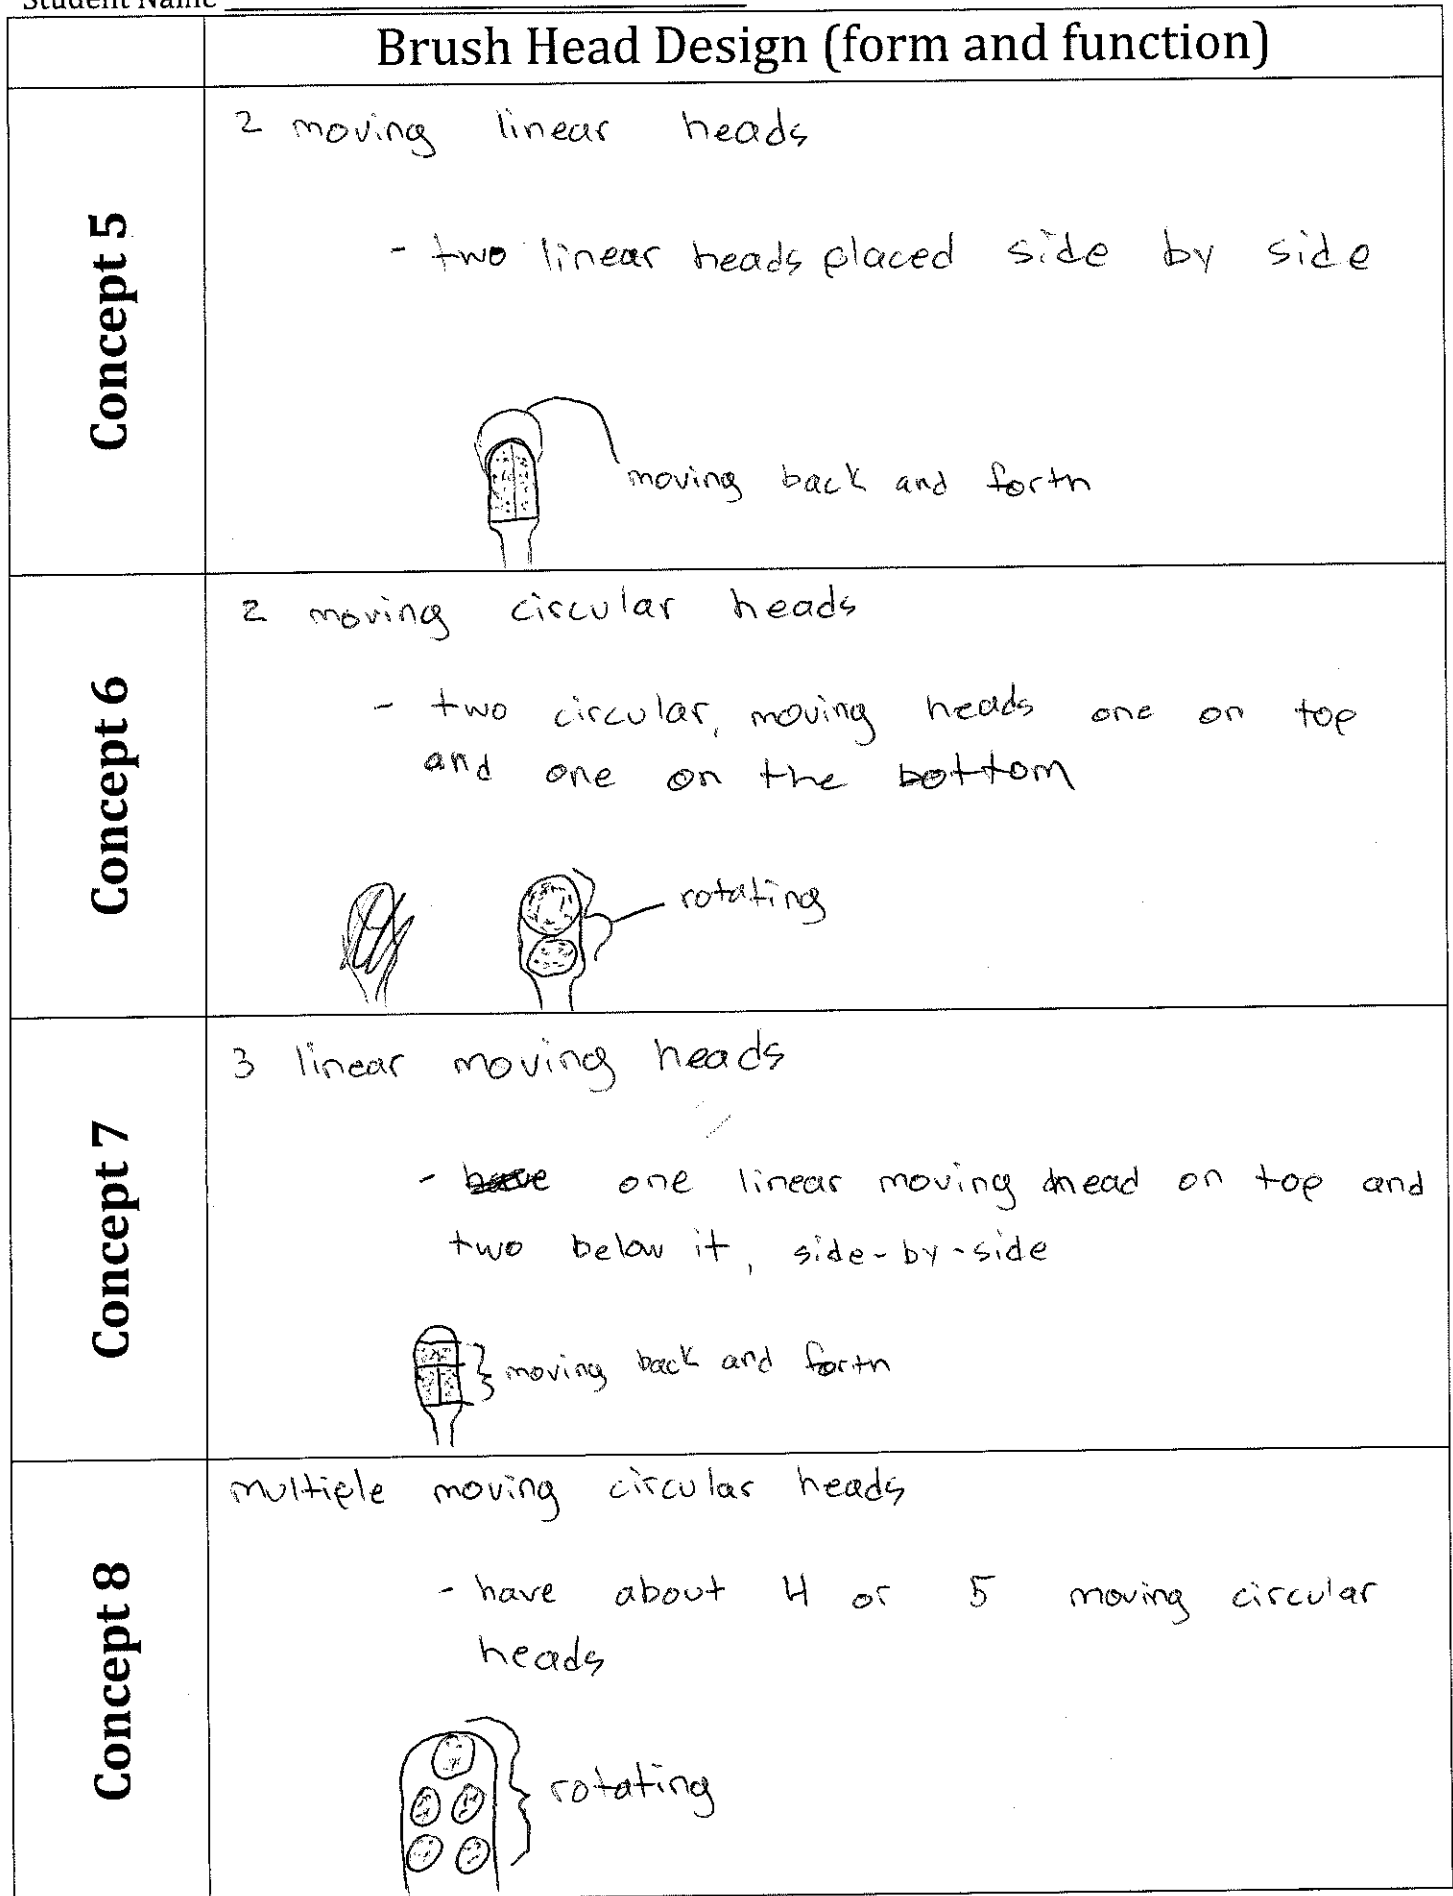 Student Name
Brush Head Design (form and function)
Concept 5
2 moving linear heads
- two linear heads placed side by side
moving back and forth
Concept 6
2 moving circular heads
- two circular, moving heads one on top
and one on the bottom
rotating
Concept 7
3 linear moving heads
- one linear moving head on top and
two below it, side-by-side
moving back and forth
Concept 8
multiple moving circular heads
- have about 4 or 5 moving circular
heads
rotating